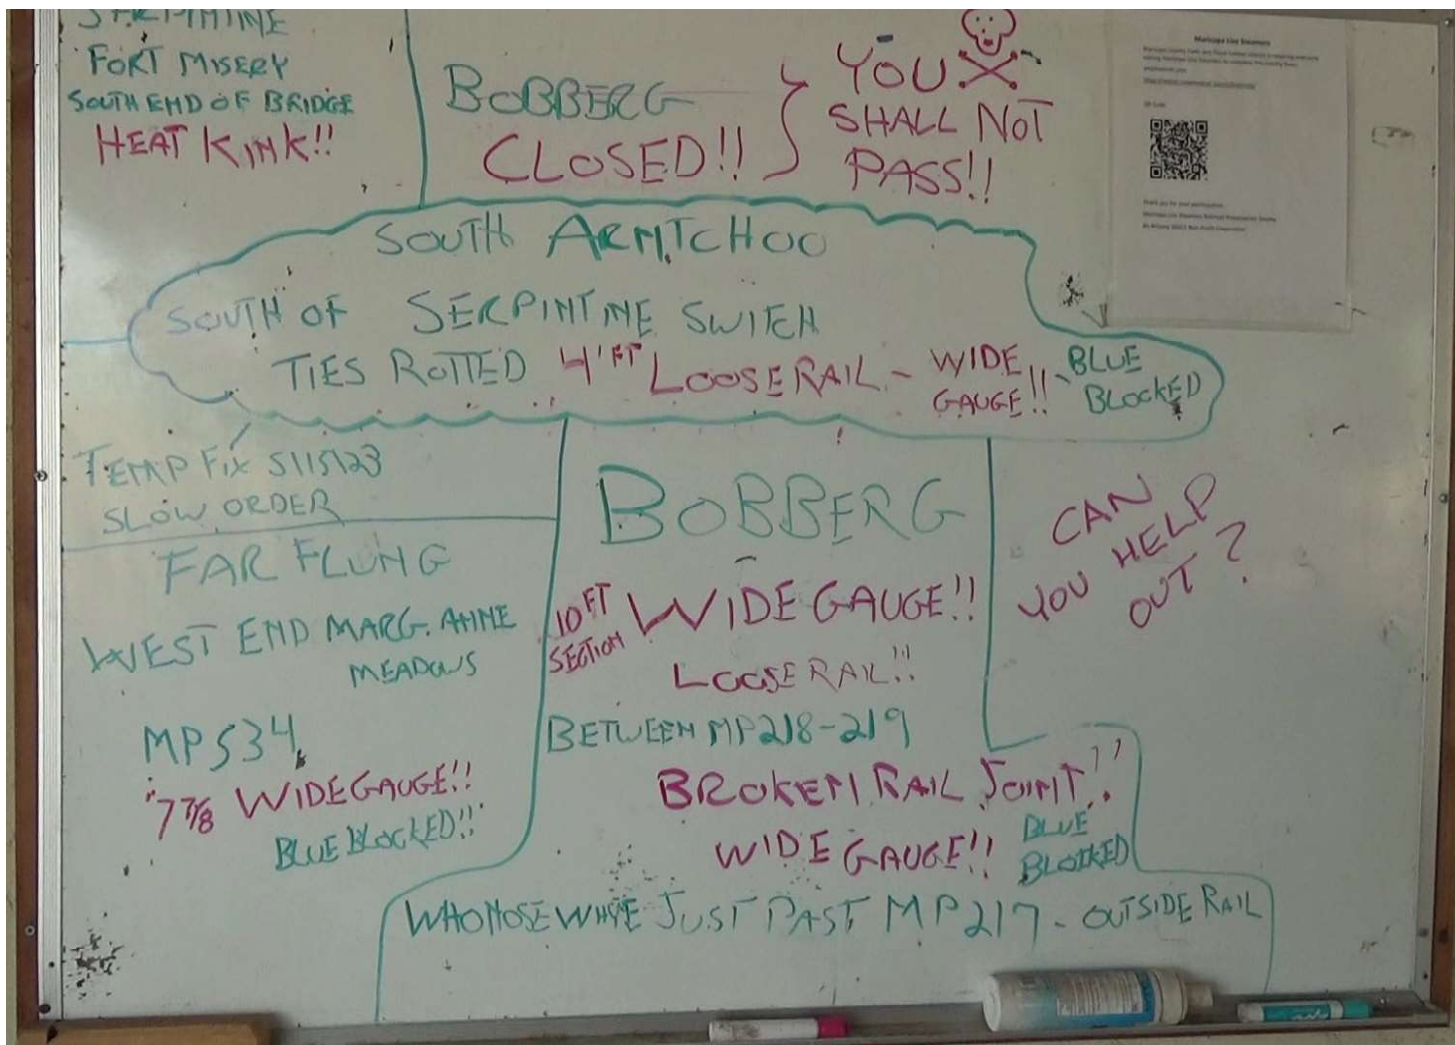 SERPINTINE
FORT MISERY
SOUTH END OF BRIDGE
HEAT KINK!!
BOBBERG
CLOSED!!
YOU
SHALL NOT
PASS!!
Maricopa Live Steamers
Thank you for your participation
SOUTH ARMITCHOO
SOUTH OF SERPINTINE SWITCH
TIES ROTTED 4' FT LOOSE RAIL - WIDE GAUGE!! - BLUE BLOCKED
TEMP FIX 5/15/23
SLOW ORDER
FAR FLUNG
WEST END MARG. ANNE
MEADOWS
MP 534
7 7/8 WIDE GAUGE!!
BLUE BLOCKED!!
BOBBERG
10 FT SECTION WIDE GAUGE!!
LOOSE RAIL!!
BETWEEN MP 218-219
BROKEN RAIL JOINT!!
WIDE GAUGE!! BLUE BLOCKED
WHONOSE WHYE JUST PAST MP 217 - OUTSIDE RAIL
CAN
YOU HELP
OUT?